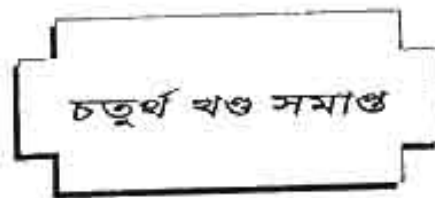 চতুর্থ খণ্ড সমাপ্ত